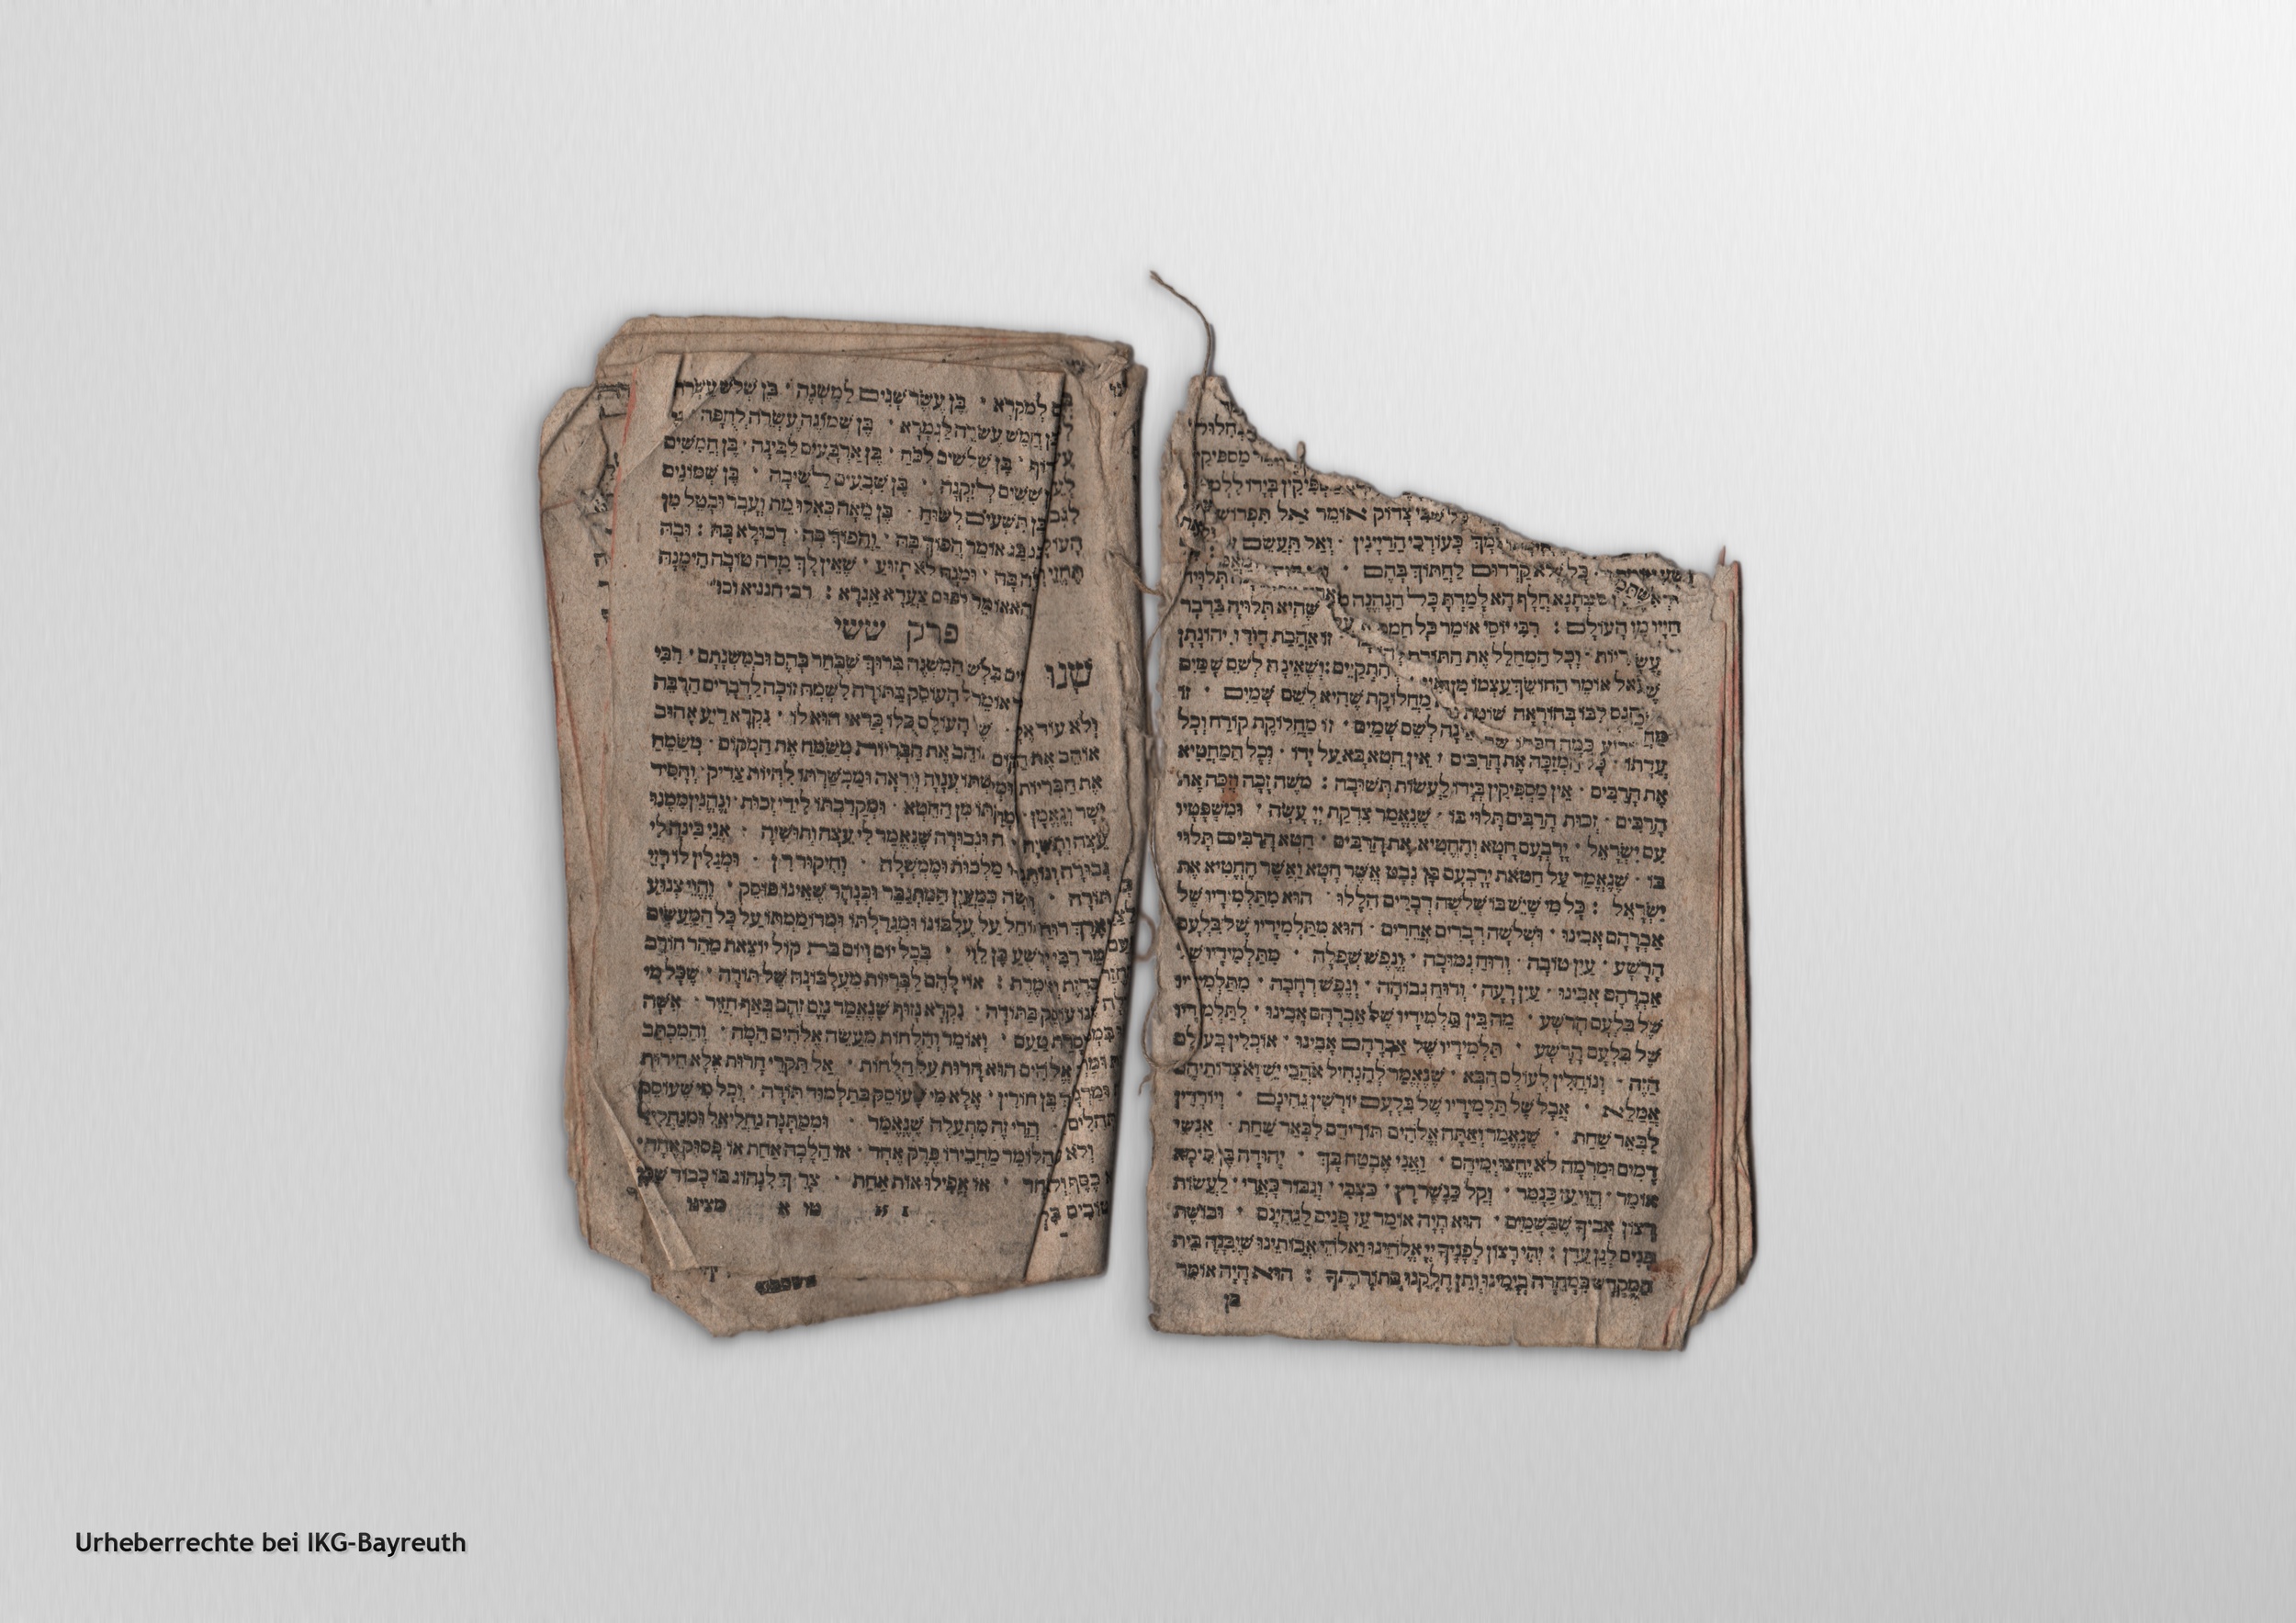 נחלו
מספיקין
מספיקין בידו ללמ
צדוק אומר אל תפרוש
כעורכי הדיינין · ואל תעשם
קרדום לחתוך בהם ·
חלף הא למדת כל הנהנה
חייו מן העולם : רבי יוסי אומר
שהיא תלויה בדבר
זו אהבת דוד ויהונתן
וכל המחלל את התורה
התקיים : ושאינה לשם שמים
אומר החושך עצמו מן
מחלוקת שהיא לשם שמים · זו
לבו בהוראה שוטה
לשם שמים · זו מחלוקת קורח וכל
עדתו · כל המזכה את הרבים אין חטא בא על ידו · וכל המחטיא
את הרבים · אין מספיקין בידו לעשות תשובה : משה זכה וזכה את
הרבים · זכות הרבים תלוי בו · שנאמר צדקת יי עשה · ומשפטיו
עם ישראל · ירבעם חטא והחטיא את הרבים · חטא הרבים תלוי
בו · שנאמר על חטאת ירבעם בן נבט אשר חטא ואשר החטיא את
ישראל : כל מי שיש בו שלשה דברים הללו · הוא מתלמידיו של
אברהם אבינו · ושלשה דברים אחרים · הוא מתלמידיו של בלעם
הרשע · עין טובה · ורוח נמוכה · ונפש שפלה · מתלמידיו של
אברהם אבינו · עין רעה · ורוח גבוהה · ונפש רחבה · מתלמידיו
של בלעם הרשע · מה בין תלמידיו של אברהם אבינו · לתלמידיו
של בלעם הרשע · תלמידיו של אברהם אבינו · אוכלין בעולם
הזה · ונוחלין לעולם הבא · שנאמר להנחיל אהבי יש ואצרותיהם
אמלא · אבל של תלמידיו של בלעם יורשין גהינם · ויורדין
לבאר שחת · שנאמר ואתה אלהים תורידם לבאר שחת · אנשי
דמים ומרמה לא יחצו ימיהם · ואני אבטח בך · יהודה בן תימא
אומר · הוי עז כנמר · וקל כנשר רץ · כצבי · וגבור כארי · לעשות
רצון אביך שבשמים · הוא היה אומר עז פנים לגהינם · ובושת
פנים לגן עדן : יהי רצון לפניך יי אלהינו ואלהי אבותינו שיבנה בית
המקדש במהרה בימינו ותן חלקנו בתורתך : הוא היה אומר
בן
למקרא · בן עשר שנים למשנה · בן שלש עשרה
בן חמש עשרה לגמרא · בן שמונה עשרה לחופה ·
בן שלשים לכח · בן ארבעים לבינה · בן חמשים
ששים לזקנה · בן שבעים לשיבה · בן שמונים
בן תשעים לשוח · בן מאה כאלו מת ועבר ובטל מן
אומר הפוך בה · והפוך בה · דכולא בה : ובה
ומנה לא תזוע · שאין לך מדה טובה הימנה
האאומר לפום צערא אגרא : רבי חנניא וכו'
פרק ששי
שנו
בלשון המשנה ברוך שבחר בהם ובמשנתם · רבי
אומר העוסק בתורה לשמה זוכה לדברים הרבה
ולא עוד העולם כלו כדאי הוא לו · נקרא ריע אהוב
אוהב את אוהב את הבריות משמח את המקום · משמח
את הבריות ענוה ויראה ומכשרתו להיות צדיק · וחסיד
ישר ונאמן · מן החטא · ומקרבתו לידי זכות · ונהנין ממנו
עצה ותשיה וגבורה שנאמר לי עצה ותושיה · אני בינה לי
גבורה ונותנת מלכות וממשלה · וחיקור דין · ומגלין לו רזי
תורה · כמעין המתגבר וכנהר שאינו פוסק · והוי צנוע
וארך רוח ומוחל על עלבונו ומגדלתו ומרוממתו על כל המעשים
רבי יהושע בן לוי · בכל יום ויום בת קול יוצאת מהר חורב
ואומרת : אוי להם לבריות מעלבונה של תורה · שכל מי
עוסק בתורה · נקרא נזוף שנאמר נזם זהב באף חזיר · אשה
טעם · ואומר והלוחות מעשה אלהים המה · והמכתב
אלהים הוא חרות על הלוחות · אל תקרי חרות אלא חירות
בן חורין · אלא מי שעוסק בתלמוד תורה · וכל מי שעוסק
הרי זה מתעלה שנאמר · וממתנה נחליאל ומנחליאל
הלומד מחבירו פרק אחד · או הלכה אחת או פסוק אחד
או אפילו אות אחת · צריך לנהוג בו כבוד
מצינו
Urheberrechte bei IKG-Bayreuth